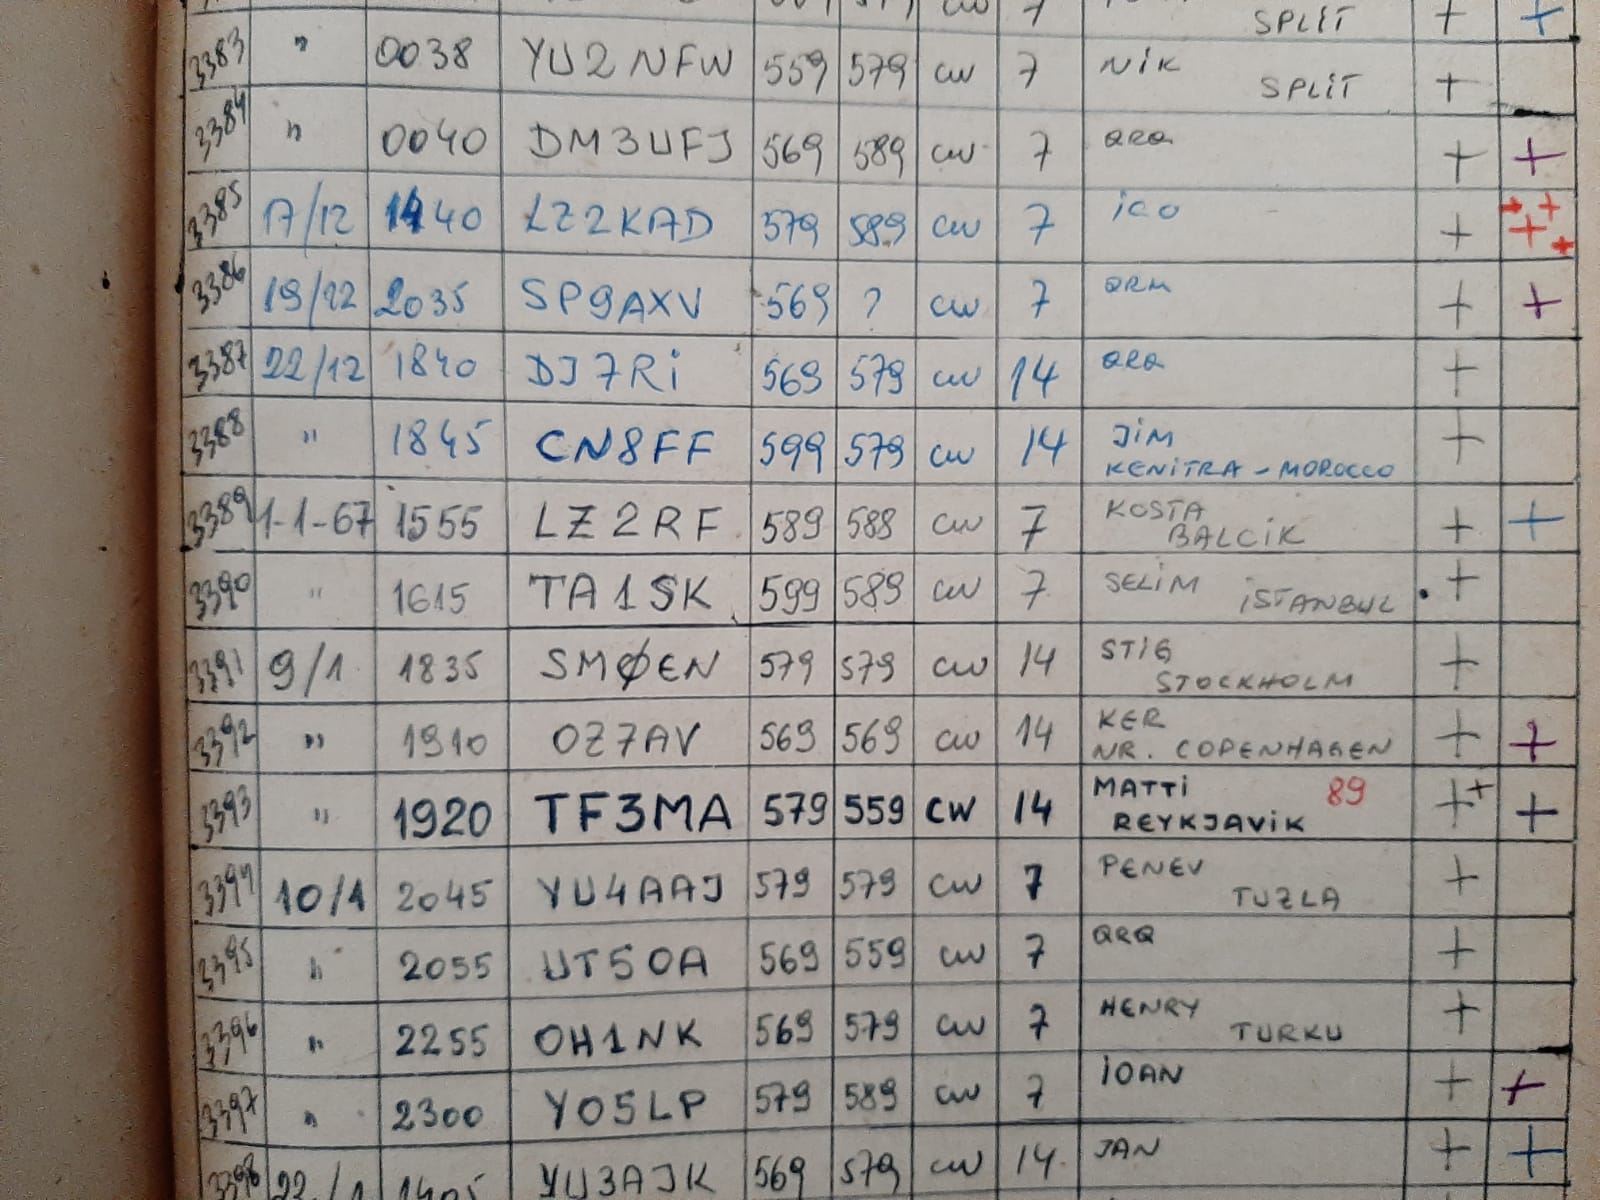 SPLIT + +
3383 " 0038 YU2NFW 559 579 CW 7 NIK SPLIT +
3384 " 0040 DM3UFJ 569 589 CW 7 QRQ + +
3385 17/12 1440 LZ2KAD 579 589 CW 7 ICO + + + + +
3386 19/12 2035 SP9AXV 569 ? CW 7 QRM + +
3387 22/12 1840 DJ7Ri 569 579 CW 14 QRQ +
3388 " 1845 CN8FF 599 579 CW 14 JIM +
KENITRA - MOROCCO
3389 1-1-67 1555 LZ2RF 589 588 CW 7 KOSTA + +
BALCIK
3390 " 1615 TA1SK 599 589 CW 7 SELIM İSTANBUL . +
3391 9/1 1835 SMØEN 579 579 CW 14 STIG +
STOCKHOLM
3392 " 1910 OZ7AV 569 569 CW 14 KER + +
NR. COPENHAGEN
3393 " 1920 TF3MA 579 559 CW 14 MATTI 89 ++ +
REYKJAVIK
3394 10/1 2045 YU4AAJ 579 579 CW 7 PENEV +
TUZLA
3395 " 2055 UT5OA 569 559 CW 7 QRQ +
3396 " 2255 OH1NK 569 579 CW 7 HENRY +
TURKU
3397 " 2300 YO5LP 579 589 CW 7 IOAN + +
3398 22/1 1405 YU3AJK 569 579 CW 14 JAN + +